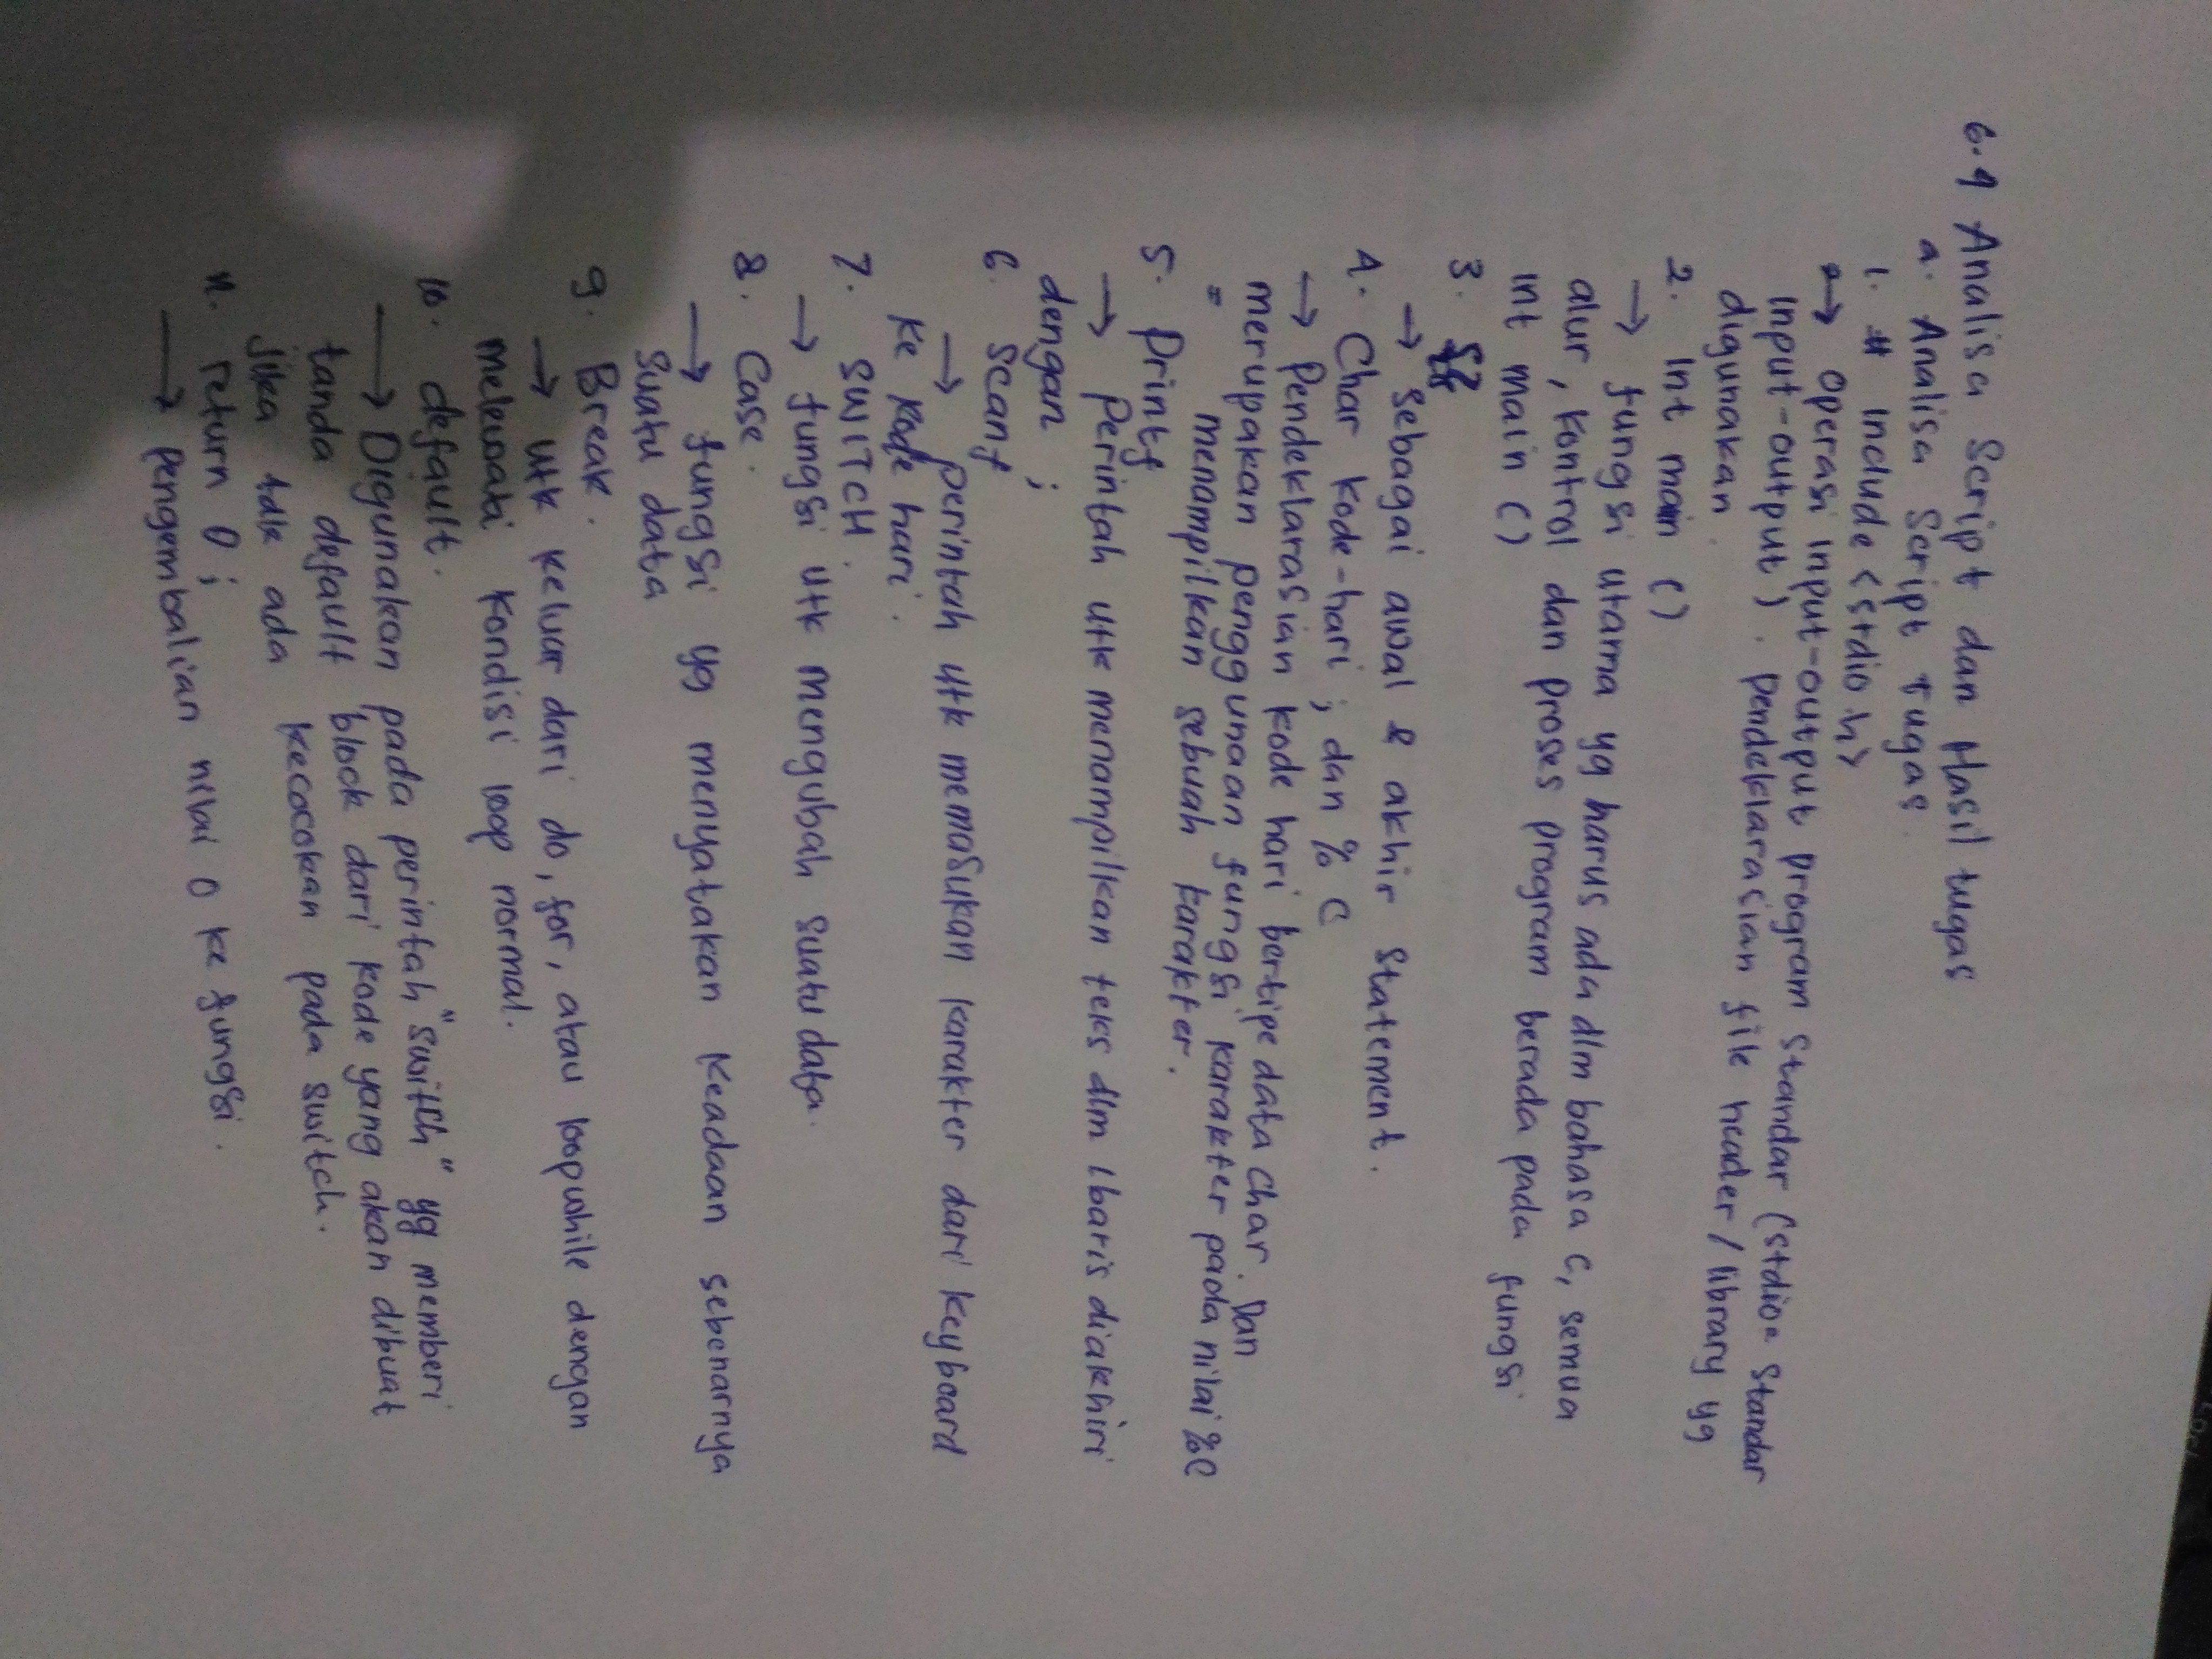 6.4 Analisa Script dan Hasil tugas
a. Analisa Script Tugas
1. # include <stdio.h>
→ operasi input-output program standar (stdio = standar
input-output). pendeklarasian file header/library yg
digunakan.
2. Int main ()
→ fungsi utama yg harus ada dlm bahasa C, semua
alur, kontrol dan proses program berada pada fungsi
int main ()
3. {}
→ sebagai awal & akhir statement.
4. Char kode-hari ; dan % C
→ Pendeklarasian kode hari bertipe data char. Dan
merupakan penggunaan fungsi karakter pada nilai %C
= menampilkan sebuah karakter.
5. Printf
→ Perintah utk menampilkan teks dlm 1baris diakhiri
dengan ;
6. Scanf
→ perintah utk memasukan karakter dari keyboard
ke kode hari.
7. SWITCH.
→ fungsi utk mengubah suatu data.
8. Case.
→ fungsi yg menyatakan keadaan sebenarnya
suatu data
9. Break.
→ utk keluar dari do, for, atau loopwhile dengan
melewati kondisi loop normal.
10. default.
→ Digunakan pada perintah "switch" yg memberi
tanda default block dari kode yang akan dibuat
jika tdk ada kecocokan pada switch.
11. return 0 ;
→ pengembalian nilai 0 ke fungsi.